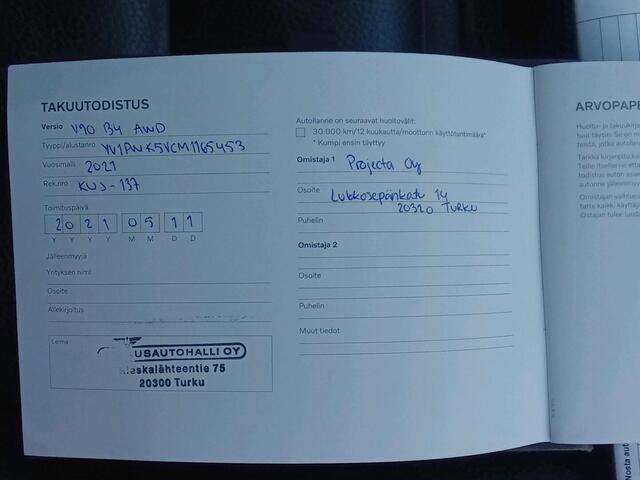 TAKUUTODISTUS
Versio V90 B4 AWD
Tyyppi/alustanro YV1PWK5VCM1165453
Vuosimalli 2021
Rek.nro KUS-137
Toimituspäivä
2021 05 11
Y Y Y Y M M D D
Jälleenmyyjä
Yrityksen nimi
Osoite
Allekirjoitus
Leima
USAUTOHALLI OY
ieskalähteentie 75
20300 Turku
Autollanne on seuraavat huoltovälit:
30 000 km/12 kuukautta/moottorin käyttötuntimäärä*
* Kumpi ensin täyttyy
Omistaja 1 Projecta Oy
Osoite Lukkosepänkatu 14
20320 TURKU
Puhelin
Omistaja 2
Osoite
Puhelin
Muut tiedot
ARVOPAPE
Huolto- ja takuukirj
Tarkka kirjanpito
autonne jälleenmy
Omistajan vaihtues
Nosta aut